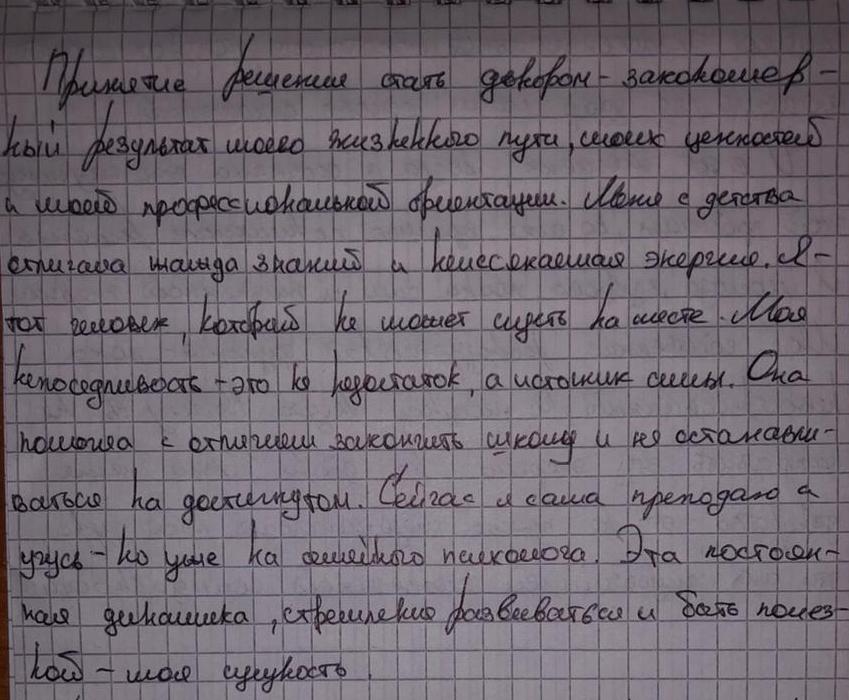 Принятие решения стать донором - закономер-
ный результат моего жизненного пути, моих ценностей
и моей профессиональной ориентации. Меня с детства
отличала жажда знаний и неиссякаемая энергия. Я -
тот человек, который не может сидеть на месте. Моя
непоседливость - это не недостаток, а источник силы. Она
помогла с отличием закончить школу и не останавли-
ваться на достигнутом. Сейчас я сама преподаю и
учусь - но уже на семейного психолога. Эта постоян-
ная динамика, стремление развиваться и быть полез-
ной - моя сущность.